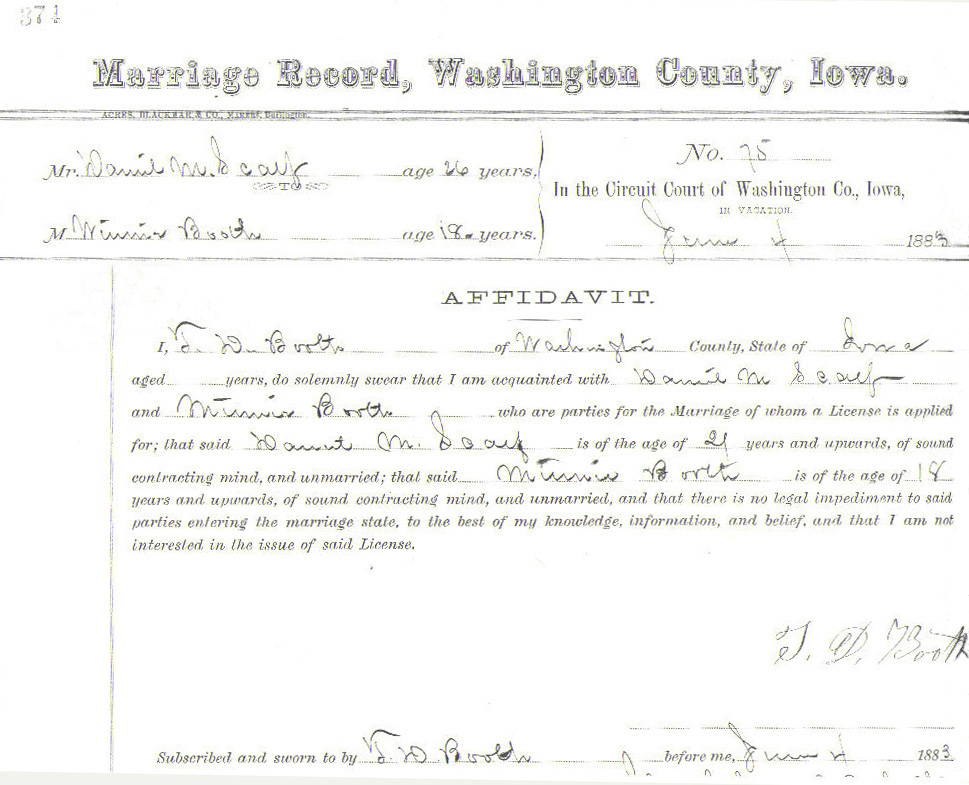 374
Marriage Record, Washington County, Iowa.
ACRES, BLACKMAR & CO., MAKERS, Burlington.
Mr. Daniel M. Scarf age 26 years,
TO
M Minnie Booth age 18 years.
No. 75
In the Circuit Court of Washington Co., Iowa,
IN VACATION.
June 4 1883
AFFIDAVIT.
I, T. D. Booth of Washington County, State of Iowa
aged years, do solemnly swear that I am acquainted with Daniel M Scarf
and Minnie Booth who are parties for the Marriage of whom a License is applied
for; that said Daniel M. Scarf is of the age of 21 years and upwards, of sound
contracting mind, and unmarried; that said Minnie Booth is of the age of 18
years and upwards, of sound contracting mind, and unmarried, and that there is no legal impediment to said
parties entering the marriage state, to the best of my knowledge, information, and belief, and that I am not
interested in the issue of said License.
T. D. Booth
Subscribed and sworn to by T D Booth before me, June 4 1883